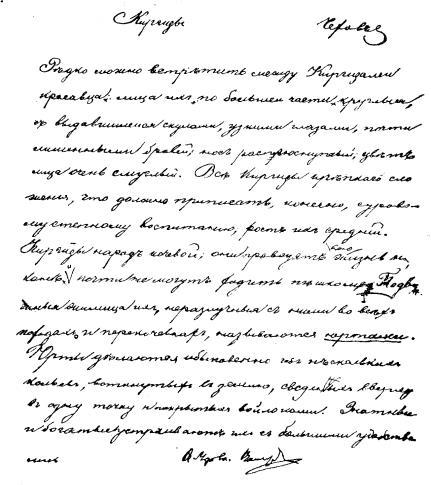 Киргизы
Рѣдко можно встрѣтить между Киргизами
красавца. лица ихъ по большей части круглыя,
съ выдавшимися скулами, узкими глазами, почти
лишенными бровей; носъ расплюснутый; цвѣтъ
лица очень смуглый. Всѣ Киргизы крѣпкаго сло
женія, что должно приписать, конечно, сурово
му степному воспитанію, ростъ ихъ средній.
Киргизы народъ кочевой; они проводятъ свою жизнь на
конѣ и почти не могутъ ходить пѣшкомъ. Подви
жныя жилища ихъ, неразлучныя съ ними во всѣхъ
походахъ и перекочевкахъ, называются юртами.
Юрты дѣлаются обыкновенно изъ нѣсколькихъ
кольевъ, воткнутыхъ въ землю, сведенныхъ вверху
въ одну точку и покрытыхъ войлоками. Знатные
и богатые устраиваютъ ихъ съ большими удобства
ми